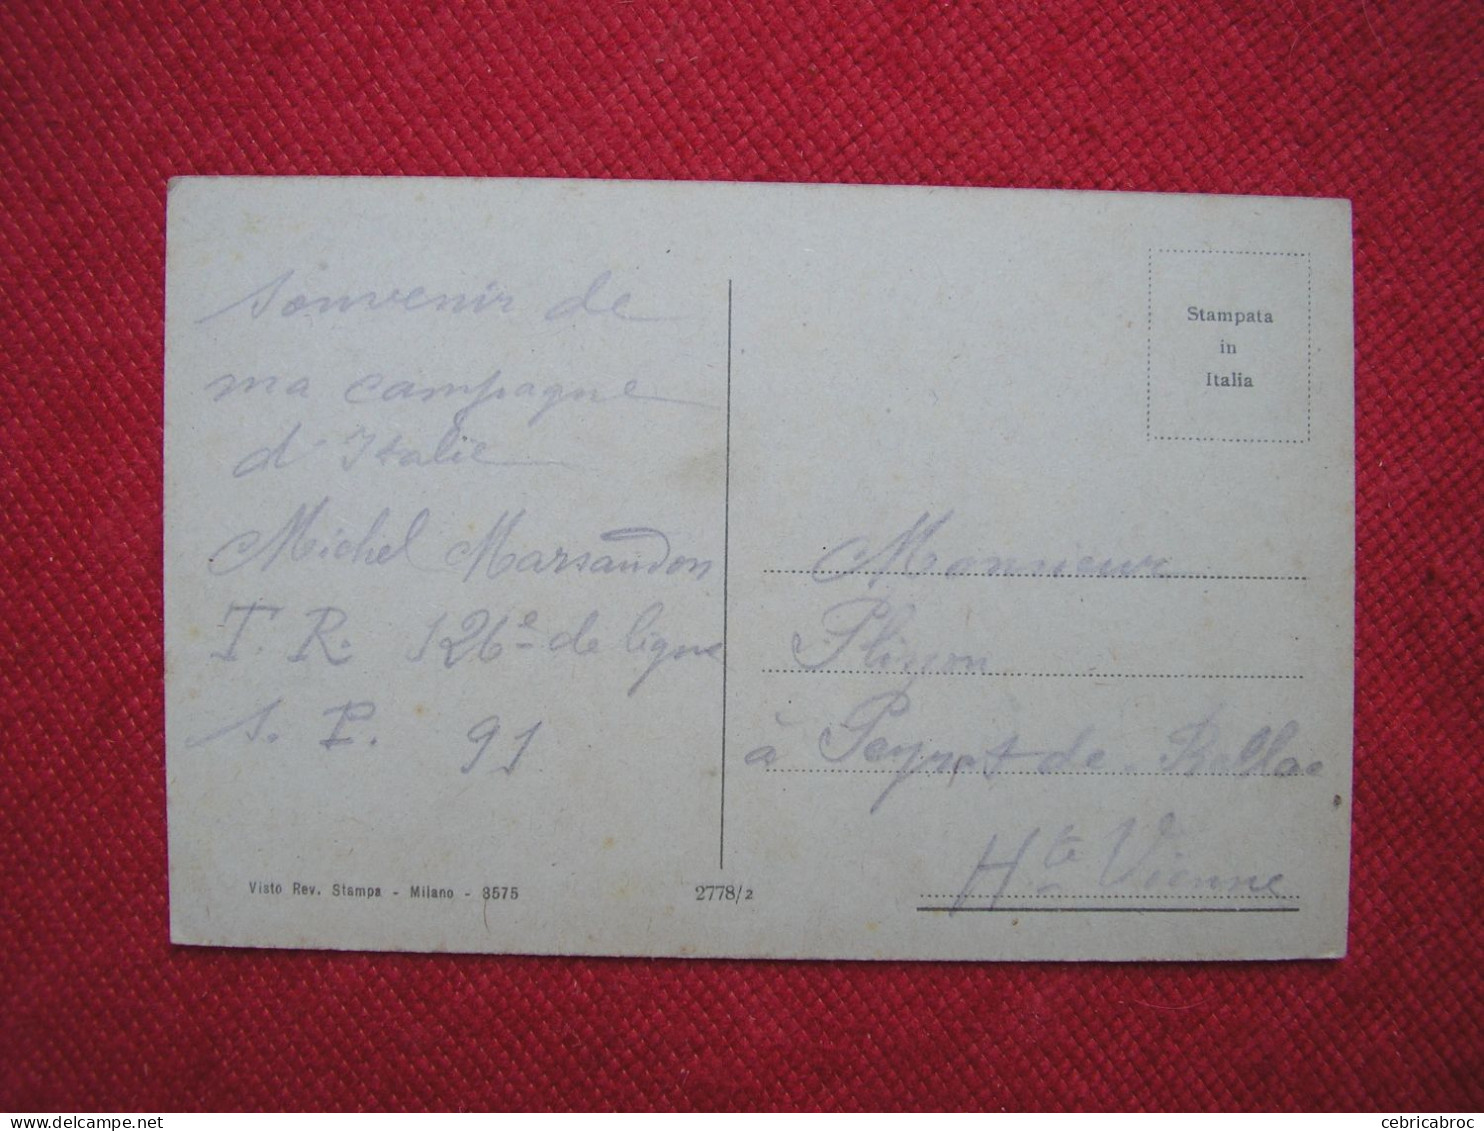 Souvenir de
ma campagne
d'Italie
Michel Marsaudon
T. R. 126e de ligne
S. P. 91
Stampata
in
Italia
Monsieur
à Peyrat de Bellac
Hte Vienne
Visto Rev. Stampa - Milano - 3575
2778/2
cebricabroc
delcampe.net